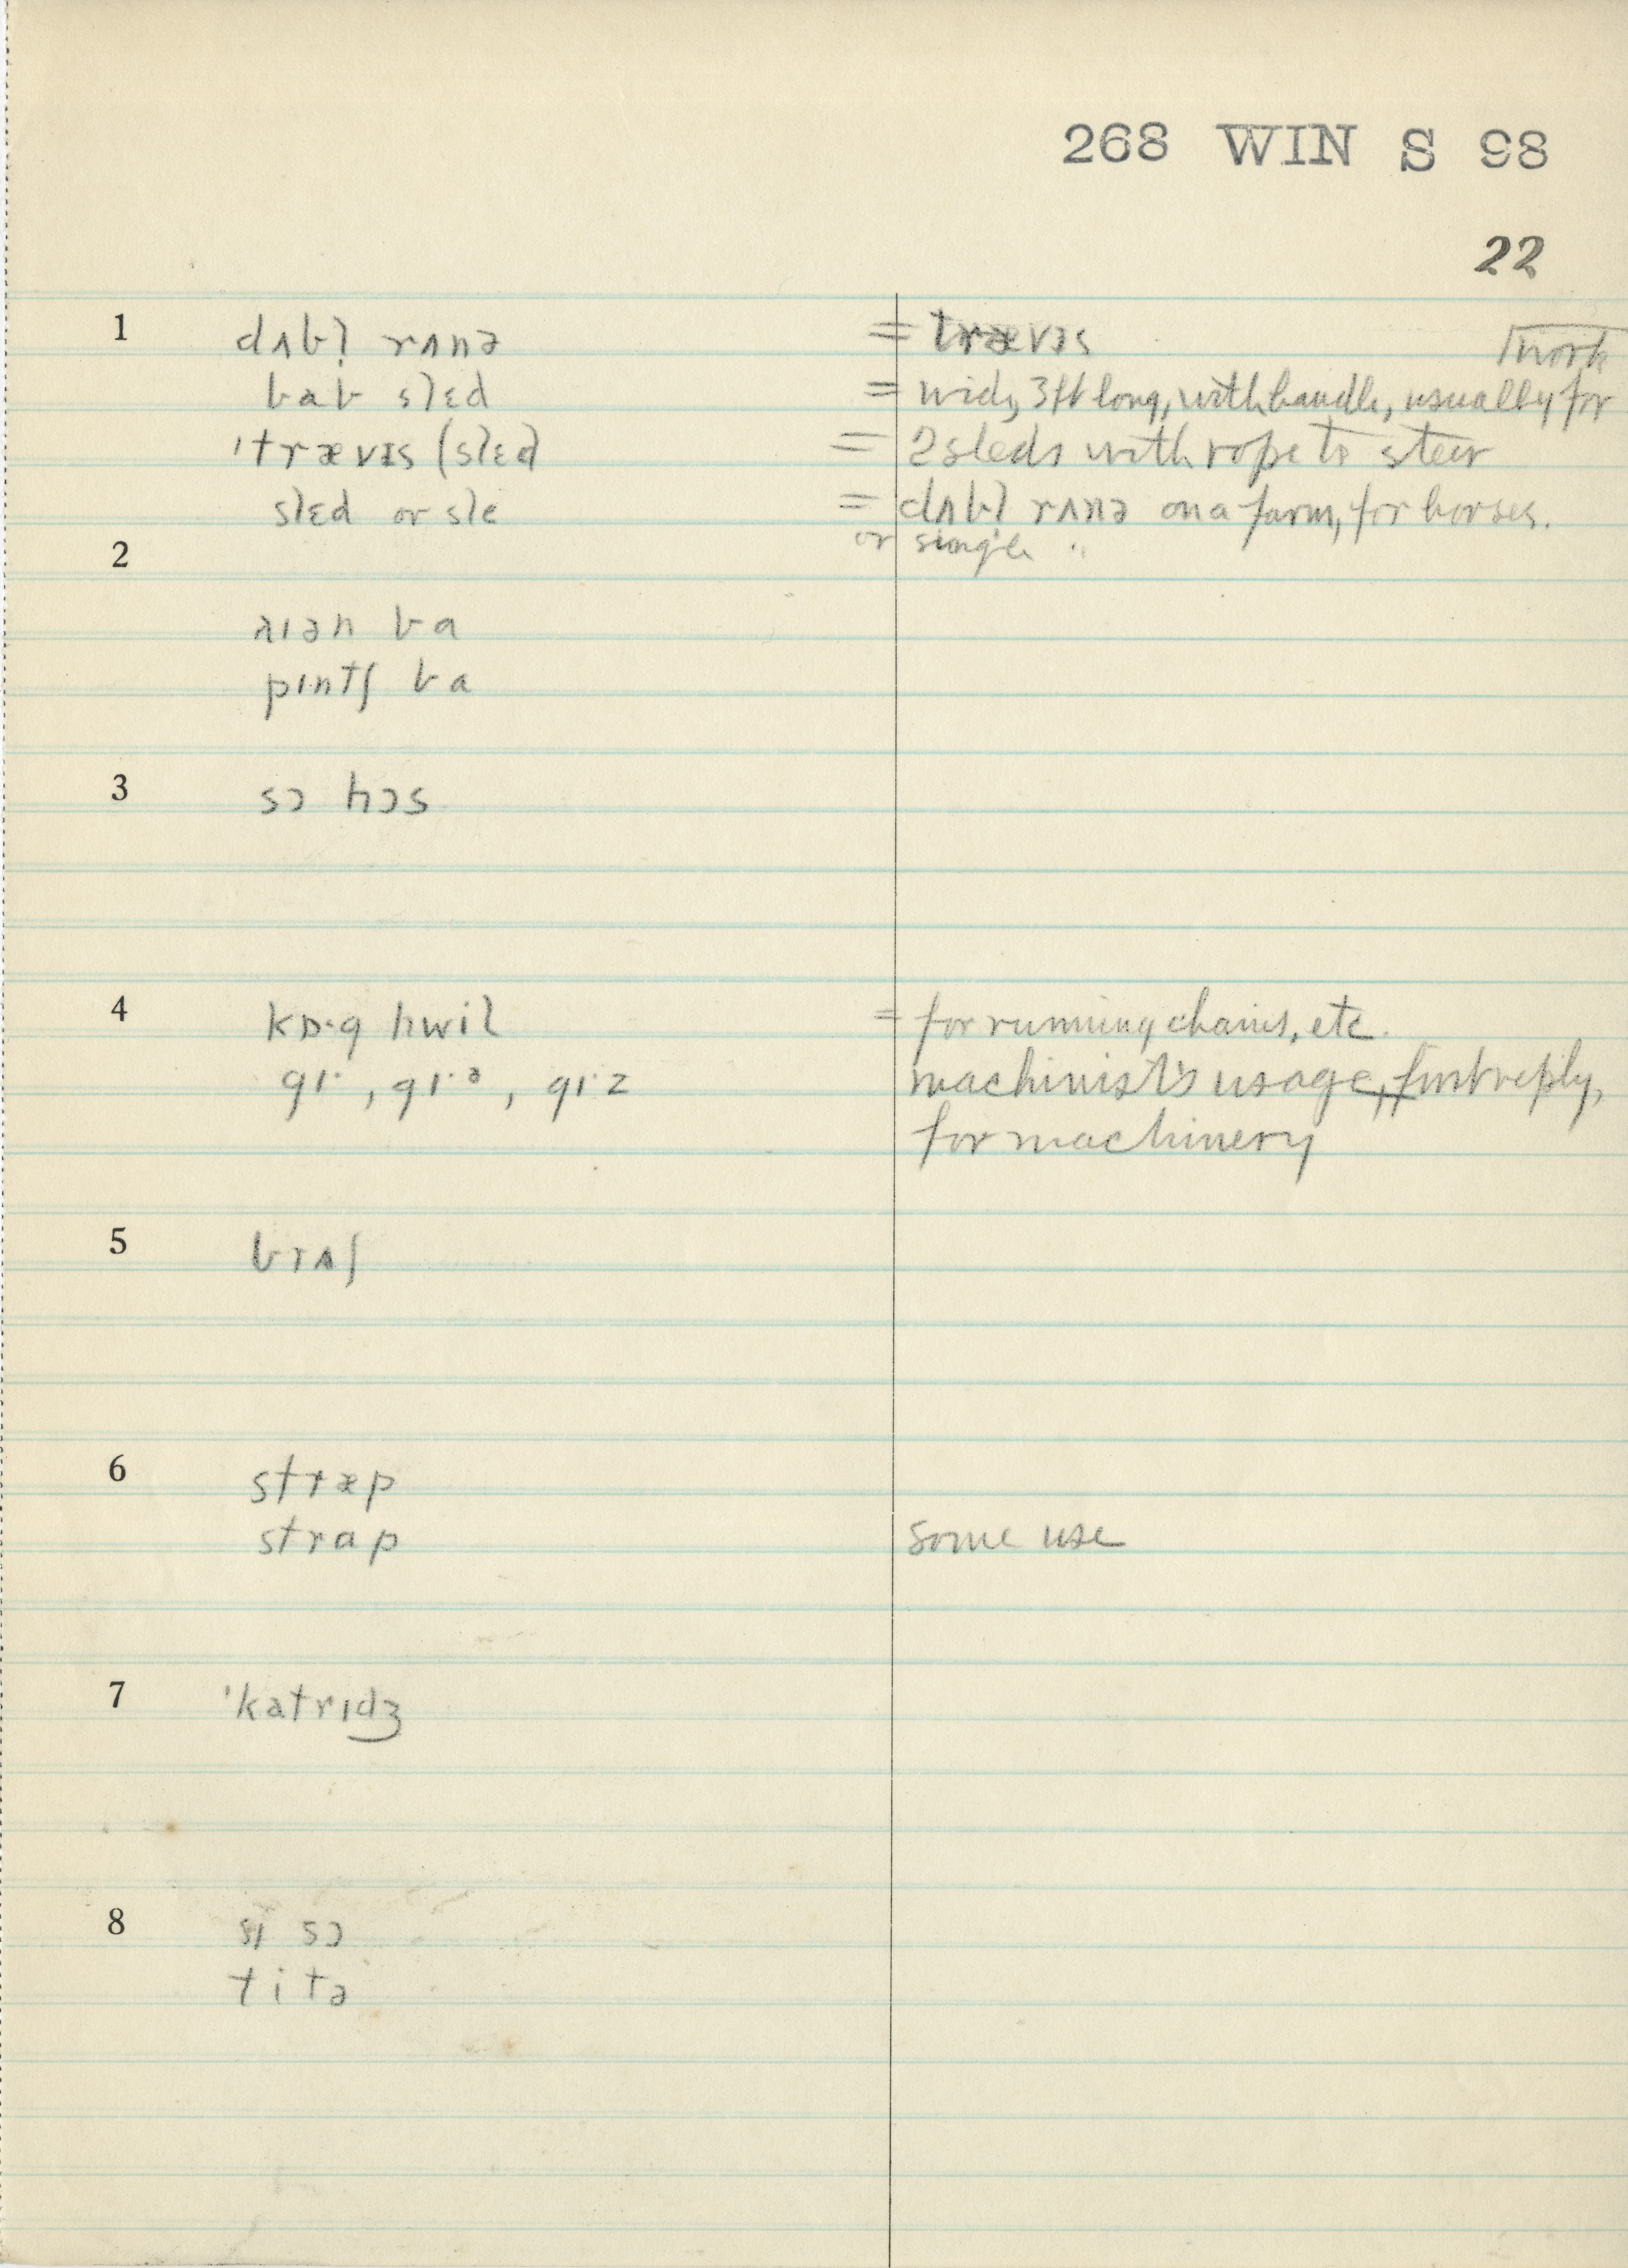 268 WIN S 98
22
1 dʌbl̩ rʌnə = trævɪs
work
bab slɛd = wide, 3ft long, with handle, usually for
ˈtrævɪs (slɛd) = 2 sleds with rope to steer
slɛd or sle = dʌbl̩ rʌnə on a farm, for horses.
2 or single "
aɪən ba
pɪntʃ ba
3 sɔ hɔs
4 kɒ·g hwil = for running chains, etc.
gɪ·, gɪ·ə, gɪ·z machinist's usage, first reply,
for machinery
5 brʌʃ
6 stræp
strap some use
7 ˈkatrɪdʒ
8 si sɔ
titə